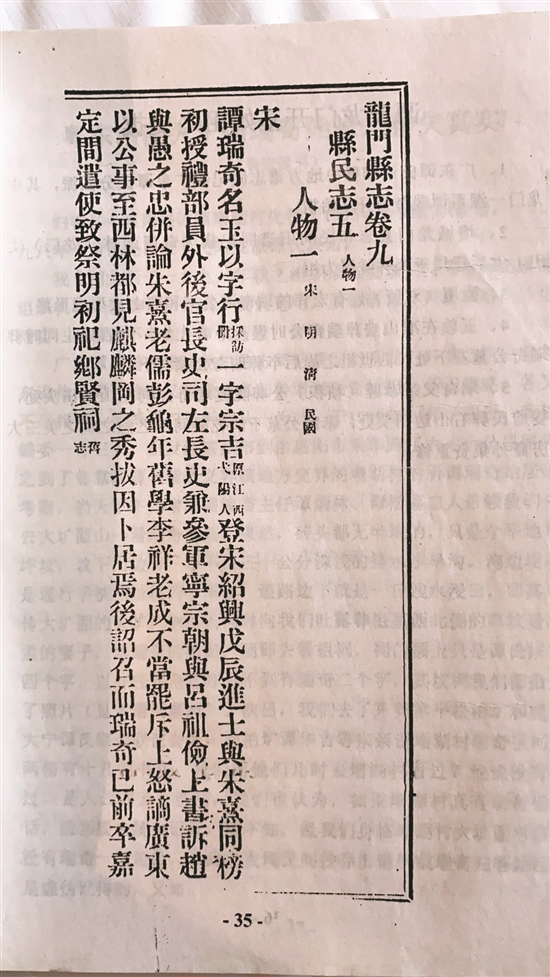 龍門縣志卷九
縣民志五 人物一
人物一 宋 明 清 民國
宋
譚瑞奇名玉以字行採訪冊一字宗吉原江西弋陽人登宋紹興戊辰進士與朱熹同榜
初授禮部員外後官長史司左長史兼參軍寧宗朝與呂祖儉上書訴趙
與愚之忠併論朱熹老儒彭龜年舊學李祥老成不當罷斥上怒謫廣東
以公事至西林都見麒麟岡之秀拔因卜居焉後詔召而瑞奇已前卒嘉
定間遣使致祭明初祀鄉賢祠舊志
- 35 -